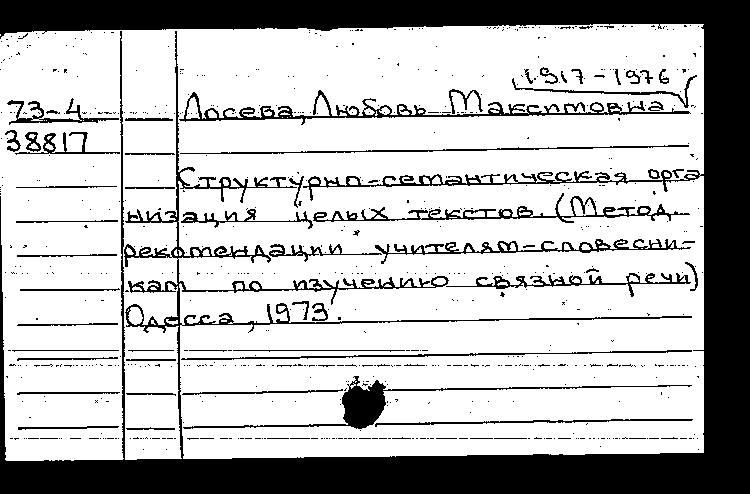 1917-1976
73-4 Лосева, Любовь Максимовна
38817
Структурно-семантическая орга-
низация целых текстов. (Метод.
рекомендации учителям-словесни-
кам по изучению связной речи)
Одесса, 1973.